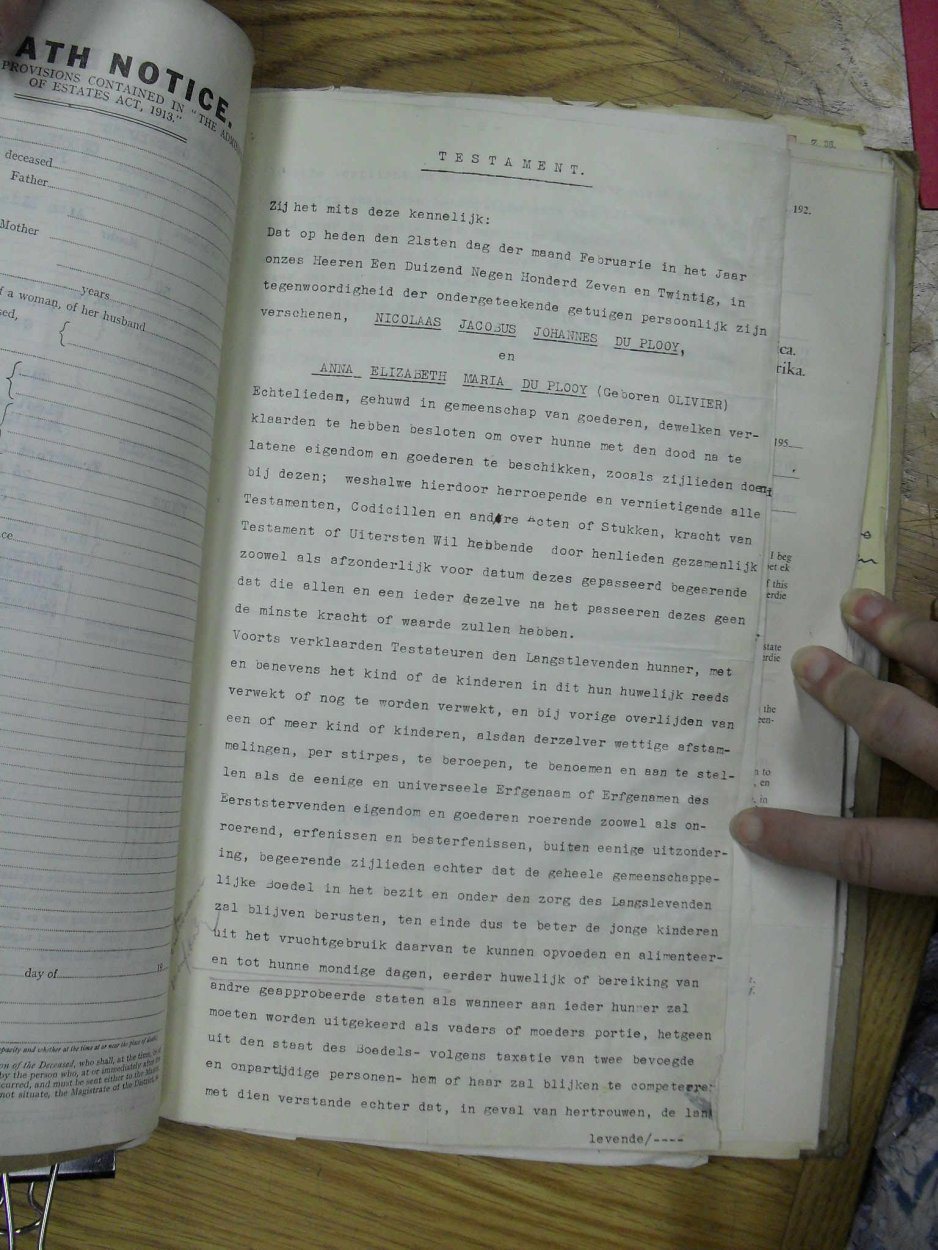 ATH NOTICE.
PROVISIONS CONTAINED IN "THE
OF ESTATES ACT, 1913."
deceased
Father
Mother
years
f a woman, of her husband
sed,
ce
day of 19
pacity and whether at the time at or near the place of death.
on of the Deceased, who shall, at the time,
by the person who, at or immediately after
curred, and must be sent either to the
not situate, the Magistrate of the District,
TESTAMENT.
Zij het mits deze kennelijk:
Dat op heden den 21sten dag der maand Februarie in het Jaar
onzes Heeren Een Duizend Negen Honderd Zeven en Twintig, in
tegenwoordigheid der ondergeteekende getuigen persoonlijk zijn
verschenen, NICOLAAS JACOBUS JOHANNES DU PLOOY,
en
ANNA ELIZABETH MARIA DU PLOOY (Geboren OLIVIER)
Echtelieden, gehuwd in gemeenschap van goederen, dewelken ver-
klaarden te hebben besloten om over hunne met den dood na te
latene eigendom en goederen te beschikken, zooals zijlieden doen
bij dezen; weshalwe hierdoor herroepende en vernietigende alle
Testamenten, Codicillen en andere Acten of Stukken, kracht van
Testament of Uitersten Wil hebbende door henlieden gezamenlijk
zoowel als afzonderlijk voor datum dezes gepasseerd begeerende
dat die allen en een ieder dezelve na het passeeren dezes geen
de minste kracht of waarde zullen hebben.
Voorts verklaarden Testateuren den Langstlevenden hunner, met
en benevens het kind of de kinderen in dit hun huwelijk reeds
verwekt of nog te worden verwekt, en bij vorige overlijden van
een of meer kind of kinderen, alsdan derzelver wettige afstam-
melingen, per stirpes, te beroepen, te benoemen en aan te stel-
len als de eenige en universeele Erfgenaam of Erfgenamen des
Eerststervenden eigendom en goederen roerende zoowel als on-
roerend, erfenissen en besterfenissen, buiten eenige uitzonder-
ing, begeerende zijlieden echter dat de geheele gemeenschappe-
lijke Boedel in het bezit en onder den zorg des Langslevenden
zal blijven berusten, ten einde dus te beter de jonge kinderen
uit het vruchtgebruik daarvan te kunnen opvoeden en alimenteer-
en tot hunne mondige dagen, eerder huwelijk of bereiking van
andre geapprobeerde staten als wanneer aan ieder hunner zal
moeten worden uitgekeerd als vaders of moeders portie, hetgeen
uit den staat des Boedels- volgens taxatie van twee bevoegde
en onpartijdige personen- hem of haar zal blijken te competeeren
met dien verstande echter dat, in geval van hertrouwen, de lan
levende/----
192.
ca.
rika.
195
I beg
et ek
f this
erdie
state
erdie
the
een-
n to
, en
, in